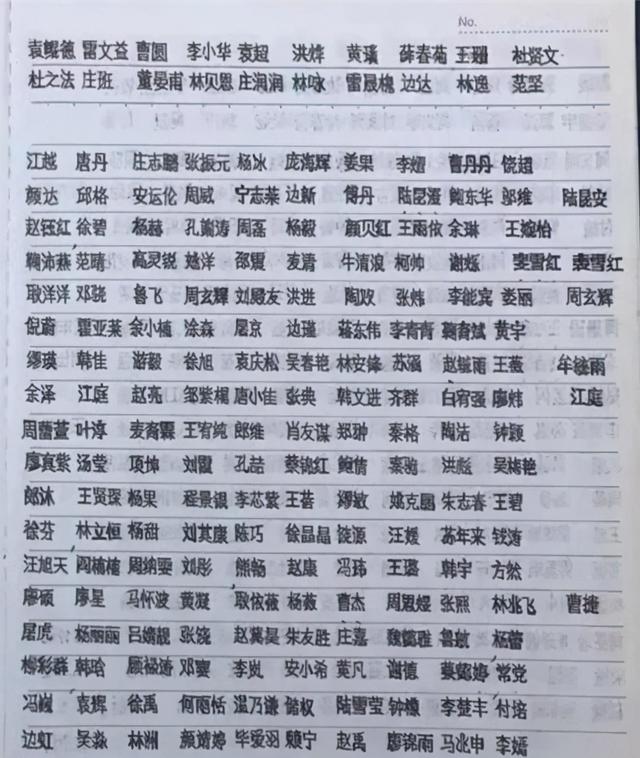 No.
袁鲲德 雷文益 曹圆 李小华 袁超 洪烨 黄瑀 薛春菊 王珊 杜贤文
杜之法 庄班 董晏甫 林贝恩 庄润润 林咏 雷晟槐 边达 林逸 范坚
江越 唐丹 庄志鹏 张振元 杨冰 庞海辉 姜果 李妞 曹丹丹 饶超
颜达 邱格 安运伦 周威 宁志莱 边新 傅丹 陆昆滢 鞠东华 邬维 陆昆安
赵钰红 徐碧 杨赫 孔谢涛 周磊 杨毅 颜贝红 王雨依 余琳 王嫁怡
鞠沛燕 范晴 高灵锐 姚洋 邵震 麦清 牛清浪 柯帅 谢烁 窦雪红 袁雪红
耿洋洋 邓骁 鲁飞 周玄辉 刘殿友 洪进 陶双 张炜 李能宾 娄丽 周玄辉
倪蔚 夏亚莱 余小楠 涂森 屠京 边瑶 蒋东伟 李青青 鞠育斌 黄宇
缪瑛 韩佳 游毅 徐旭 袁庆松 吴春艳 林安锋 苏涵 赵毓雨 王薇 牟毓雨
余泽 江庭 赵亮 邹紫楣 唐小佳 张典 韩文进 齐群 白宥强 廖炜 江庭
周蕾萱 叶淳 麦裔霖 王宥纯 郎维 肖友谋 郑翀 秦格 陶洁 钟颖
廖真紫 汤莹 项坤 刘霞 孔喆 蔡锦红 鲍倩 秦驰 洪彪 吴梅艳
郎沐 王贤琛 杨果 程景银 李芯紫 王荟 缪敏 姚克国 朱志春 王碧
徐芬 林立恒 杨甜 刘其康 陈巧 徐晶晶 饶源 汪媛 苏年来 钱涛
汪旭天 阎楠楠 周纳雯 刘彤 熊畅 赵康 冯玮 王璐 韩宇 方然
廖硕 廖星 马怀波 黄凝 耿依薇 杨薇 曹杰 周恩媛 张熙 林兆飞 曹捷
屠虎 杨丽丽 吕婧靓 张饶 赵冀昊 朱友胜 庄嘉 魏懿雅 鲁敏 杨蕾
柳彩群 韩晗 顾禄涛 邓寰 李岚 安小希 黄凡 谢德 蔡懿婷 常党
冯巍 袁辉 徐禹 何雨恬 温乃谦 储权 陆雪莹 钟檬 李楚丰 付培
边虹 吴淼 林洲 颜婧婷 毕爱羽 赖宁 赵禹 廖锦雨 马兆申 李嫣